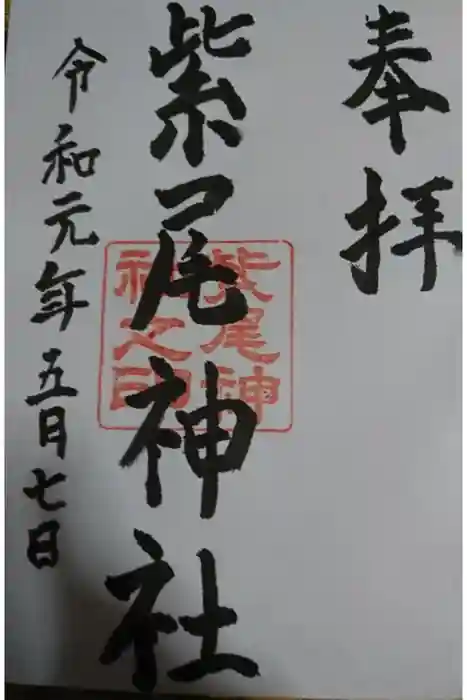 奉拝
紫尾神社
紫尾神
社之印
令和元年五月七日